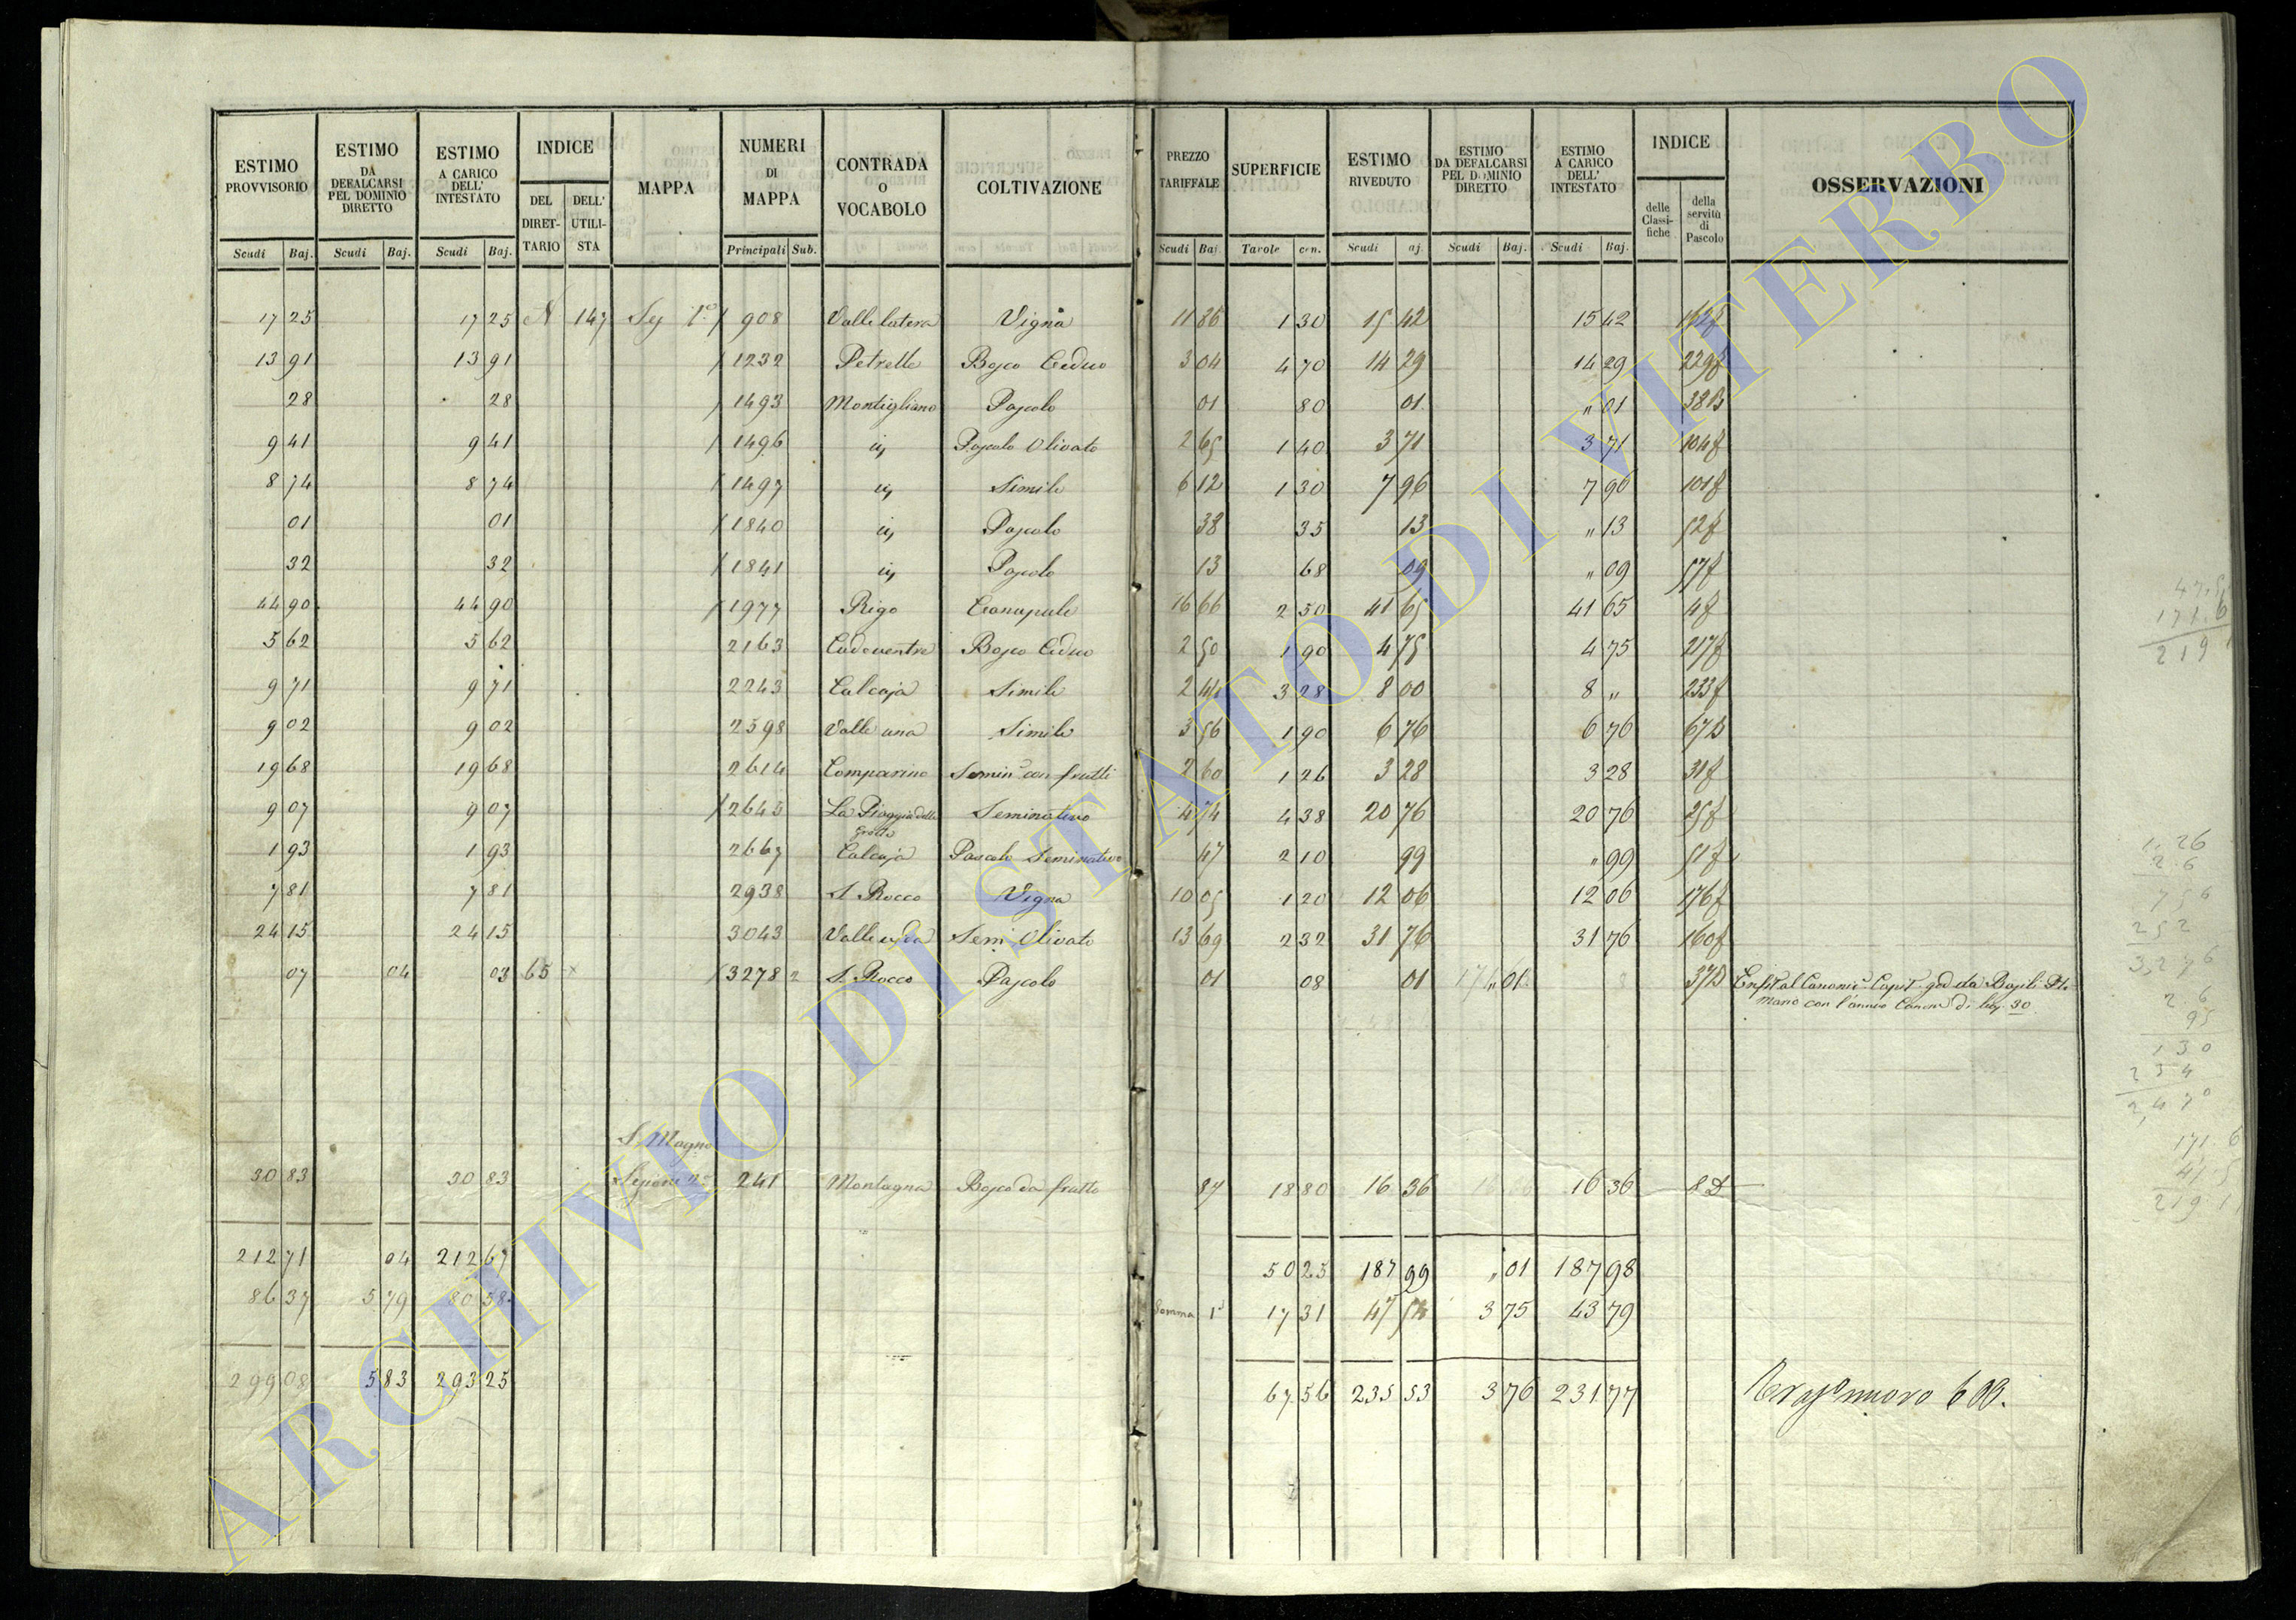 ESTIMO PROVVISORIO | ESTIMO DA DEFALCARSI PEL DOMINIO DIRETTO | ESTIMO A CARICO DELL' INTESTATO | INDICE | MAPPA | NUMERI DI MAPPA | CONTRADA O VOCABOLO | COLTIVAZIONE | PREZZO TARIFFALE | SUPERFICIE | ESTIMO RIVEDUTO | ESTIMO DA DEFALCARSI PEL DOMINIO DIRETTO | ESTIMO A CARICO DELL' INTESTATO | INDICE | OSSERVAZIONI
DEL DIRETTARIO | DELL' UTILISTA | delle Classifiche | della servitù di Pascolo
Scudi | Baj. | Scudi | Baj. | Scudi | Baj. | Principali | Sub. | Scudi | Baj. | Tavole | cen. | Scudi | aj. | Scudi | Baj. | Scudi | Baj.
17 25 | 17 25 | N | 147 | 908 | Valle latera | Vigna | 11 86 | 1 30 | 15 42 | 15 42 | 162f
13 91 | 13 91 | 1232 | Petrelle | Bosco Ceduo | 3 04 | 4 70 | 14 29 | 14 29 | 229f
28 | 28 | 1493 | Montigliano | Pascolo | 01 | 80 | 01 | " 01 | 38B
9 41 | 9 41 | 1496 | Pascolo Olivato | 2 65 | 1 40 | 3 71 | 3 71 | 104f
8 74 | 8 74 | 1497 | Simile | 6 12 | 1 30 | 7 96 | 7 96 | 101f
01 | 01 | 1840 | Pascolo | 38 | 35 | 13 | " 13 | 52f
32 | 32 | 1841 | Pascolo | 13 | 68 | 09 | " 09 | 57f
44 90 | 44 90 | 1977 | Rigo | Canapule | 16 66 | 2 50 | 41 65 | 41 65 | 4f
5 62 | 5 62 | 2163 | Bosco Ceduo | 2 50 | 1 90 | 4 75 | 4 75 | 217f
9 71 | 9 71 | 2243 | Calcaja | Simile | 2 44 | 3 28 | 8 00 | 8 " | 233f
9 02 | 9 02 | 2598 | Valle una | Simile | 3 56 | 1 90 | 6 76 | 6 76 | 67B
19 68 | 19 68 | 2614 | Comparino | Semin. con frutti | 2 60 | 1 26 | 3 28 | 3 28 | 31f
9 07 | 9 07 | 2645 | La Piaggia delle Grotte | Seminativo | 4 74 | 4 38 | 20 76 | 20 76 | 25f
1 93 | 1 93 | 2667 | Calcaja | Pascolo Seminativo | 47 | 2 10 | 99 | " 99 | 51f
7 81 | 7 81 | 2938 | S. Rocco | Vigna | 10 05 | 1 20 | 12 06 | 12 06 | 176f
24 15 | 24 15 | 3043 | Semi Olivato | 13 69 | 2 32 | 31 76 | 31 76 | 160f
07 | 04 | 03 | 65 | 3278 | 2 | S. Rocco | Pascolo | 01 | 08 | 01 | " 01 | 37B
mano con l'annuo Canone di baj 30
S. Magno
30 83 | 30 83 | Sezione | 241 | Montagna | Bosco da frutto | 87 | 18 80 | 16 36 | 16 36 | 8D
212 71 | 04 | 212 67 | 50 25 | 187 99 | " 01 | 187 98
86 37 | 5 79 | 80 58 | Somma | 17 31 | 47 54 | 3 75 | 43 79
299 08 | 5 83 | 293 25 | 67 56 | 235 53 | 3 76 | 231 77
171.6
1.26
2.6
756
252
3,276
2.6
95
130
234
2,470
171.6
219.1
ARCHIVIO DI STATO DI VITERBO